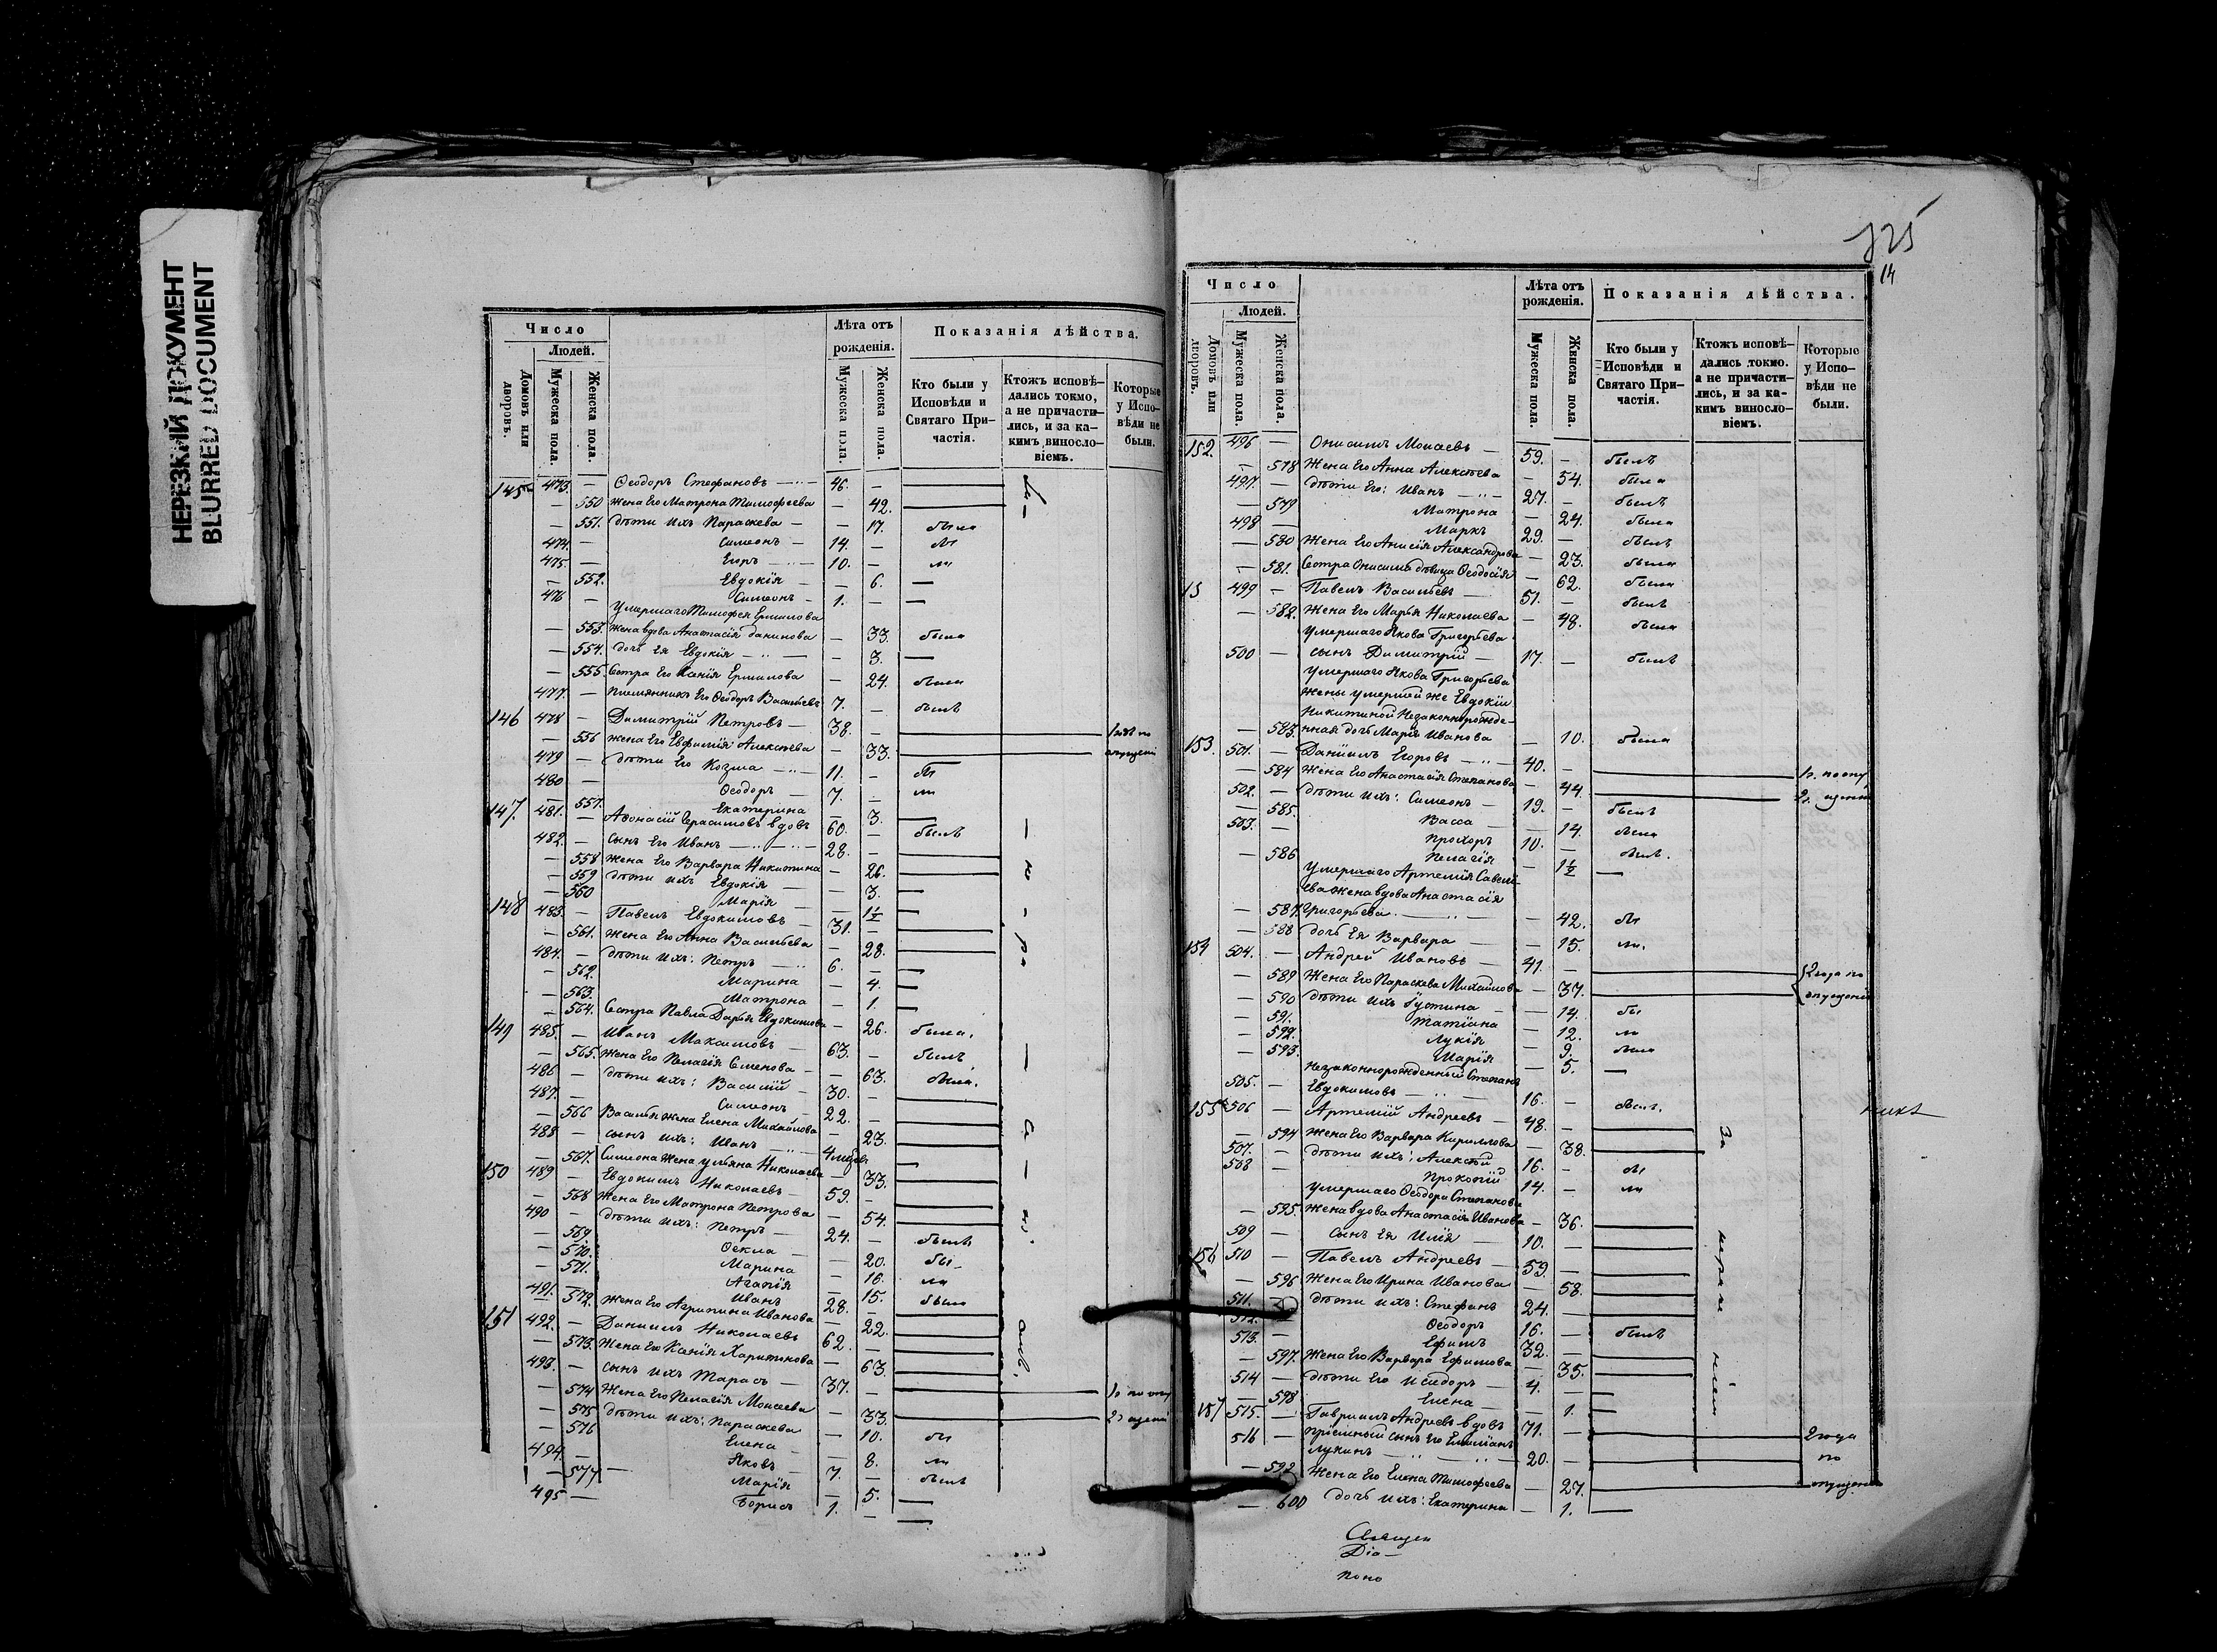 НЕРЕЗКИЙ ДОКУМЕНТ
BLURRED DOCUMENT
Число
Людей.
Домовъ или дворовъ.
Мужеска пола.
Женска пола.
Лѣта отъ рожденія.
Мужеска пола.
Женска пола.
Показанія дѣйства.
Кто были у Исповѣди и Святаго При-частія.
Ктожъ исповѣ-дались токмо, а не причасти-лись, и за ка-кимъ винословіемъ.
Которые у Испо-вѣди не были.
145 473. — Ѳеодоръ Стефановъ — 46. —
— 550 жена его Матрона Тимофеева — 42.
— 551. дѣти ихъ Параскева — — 17. была
474. — Симеонъ — 14. — бы
475 — Егоръ — 10. — ли
— 552. Евдокія — — 6. —
476 — Симеонъ — 1. — —
умершаго Тимофея Ермилова
— 553. жена вдова Анастасія Данилова — 33. была
— 554. дочь ея Евдокія — — 3. —
— 555. Сестра его Ксенія Ермилова — 24. была
477. — племянникъ его Ѳеодоръ Васильевъ 7. — былъ
146 478 — Димитрій Петровъ — 38. —
— 556 жена его Евфимія Алексѣева — 33.
479 — дѣти его Козма — 11. — бы
480 — Ѳеодоръ — 7. — ли
— 557. Екатерина — 3. —
147. 481. — Аѳонасій Герасимовъ вдовъ 60. — былъ
482. — сынъ его Иванъ — 28. —
— 558 жена его Варвара Никитина — 26.
— 559 дѣти ихъ Евдокія — — 3. —
— 560 Марія — — 1½ —
148 483. — Павелъ Евдокимовъ — 31. —
— 561. жена его Анна Васильева — 28.
484. — дѣти ихъ: Петръ — 6. — —
— 562. Марина — 4. —
— 563. Матрона — 1. —
— 564. Сестра Павла Дарья Евдокимова — 26. была,
149 485. — Иванъ Максимовъ — 63. — былъ
— 565. жена его Пелагія Семенова — 63. была.
486 — дѣти ихъ: Василій — 30. —
487. — Симеонъ — 22. —
— 566 Василья жена Елена Михайлова — 23.
488 — сынъ ихъ: Иванъ 4 —
— 567. Симеона жена Ульяна Николаева 33.
150 489 — Евдокимъ Николаевъ — 59. —
— 568 жена его Матрона Петрова — 54.
490 — дѣти ихъ: Петръ — 24. — былъ
— 569 Ѳекла — — 20. бы
— 570. Марина — 16. ли
— 571. Агапія — 15. была
491. — Иванъ 28. —
— 572. жена его Агрипина Иванова — 22.
151 492. — Даниилъ Николаевъ 62. —
— 573. жена его Ксенія Харитонова — 63.
493. — сынъ ихъ Тарасъ — 37. —
— 574 жена его Пелагія Моисеева — 33.
— 575 дѣти ихъ: Параскева — 10. бы
— 576 Елена — — 8. ли
494. — Яковъ — 7. — былъ
— 577 Марія — 5. —
495 — Борисъ 1. — —
125
14
Число
Людей.
Домовъ или дворовъ.
Мужеска пола.
Женска пола.
Лѣта отъ рожденія.
Мужеска пола.
Женска пола.
Показанія дѣйства.
Кто были у Исповѣди и Святаго При-частія.
Ктожъ исповѣ-дались токмо. а не причасти-лись, и за ка-кимъ винословіемъ.
Которые у Испо-вѣди не были.
152. 496 — Онисимъ Моисеевъ — 59. — былъ
— 578 жена его Анна Алексѣева — 54. была
497. — дѣти его: Иванъ — 27. — былъ
— 579 Матрона — 24. была
498 — Маркъ 29. — былъ
— 580 жена его Анисія Александрова — 23. была
— 581. Сестра Онисима дѣвица Ѳеодосія — 62. была
499 — Павелъ Васильевъ — 51. — былъ
— 582. жена его Марья Николаева — 48. была
умершаго Якова Григорьева
500 — сынъ Димитрій — 17. — былъ
умершаго Якова Григорьева
жены умершей же Евдокіи
Никитиной незаконнорожде-
— 583. нная дочь Марія Иванова — 10. была
153. 501. — Даніилъ Егоровъ — 40. —
— 584 жена его Анастасія Степанова — 44.
502. — дѣти ихъ: Симеонъ — 19. — былъ
— 585. Васса — — 14. была
503. — Прохоръ 10. — былъ.
— 586 Пелагія — 1½ —
умершаго Артемія Савелі-
ева жена вдова Анастасія
— 587. Григорьева — — 42. бы
— 588 дочь ея Варвара — — 15. ли.
154 504. — Андрей Ивановъ — 41. — 2 года по
— 589 жена его Параскева Михайлова — 37. опущенію
— 590 дѣти ихъ Іустина — — 14. бы
— 591. Татіана — 12. ли
— 592. Лукія — 9. была
— 593. Марія — 5. —
незаконнорожденный Степанъ
505. — Евдокимовъ — 16. — былъ.
155 506 — Артемій Андреевъ — 48 —
— 594 жена его Варвара Кириллова — 38.
507. — дѣти ихъ: Алексѣй 16. — бы
508 — Прокопій 14. — ли
умершаго Ѳеодора Степанова
— 595. жена вдова Анастасія Иванова — 36.
509 — сынъ ея Илія — 10. —
156 510 — Павелъ Андреевъ — 59. —
— 596 жена его Ирина Иванова — 58.
511. — дѣти ихъ: Стефанъ 24. —
512. — Ѳеодоръ 16. — былъ
513. — Ефимъ 32. —
— 597. жена его Варвара Ефимова — 35.
514 — дѣти его Исидоръ — 4. — —
— 598 Елена — — 1. —
157 515. — Гавріилъ Андреевъ вдовъ 71. — 2 года
516 — пріемный сынъ его Емиліанъ
Лукинъ — 20. — по
— 592 жена его Елена Тимофеева — 27. опущенію
— 600 дочь ихъ: Екатерина — 1. —
Священ
Діа—
поно